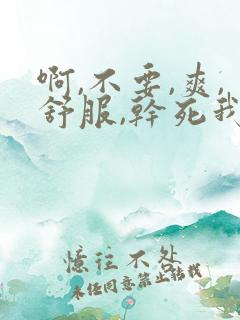 啊,不要,爽,
舒服,幹死我
憶往不处
未经同意禁止转载